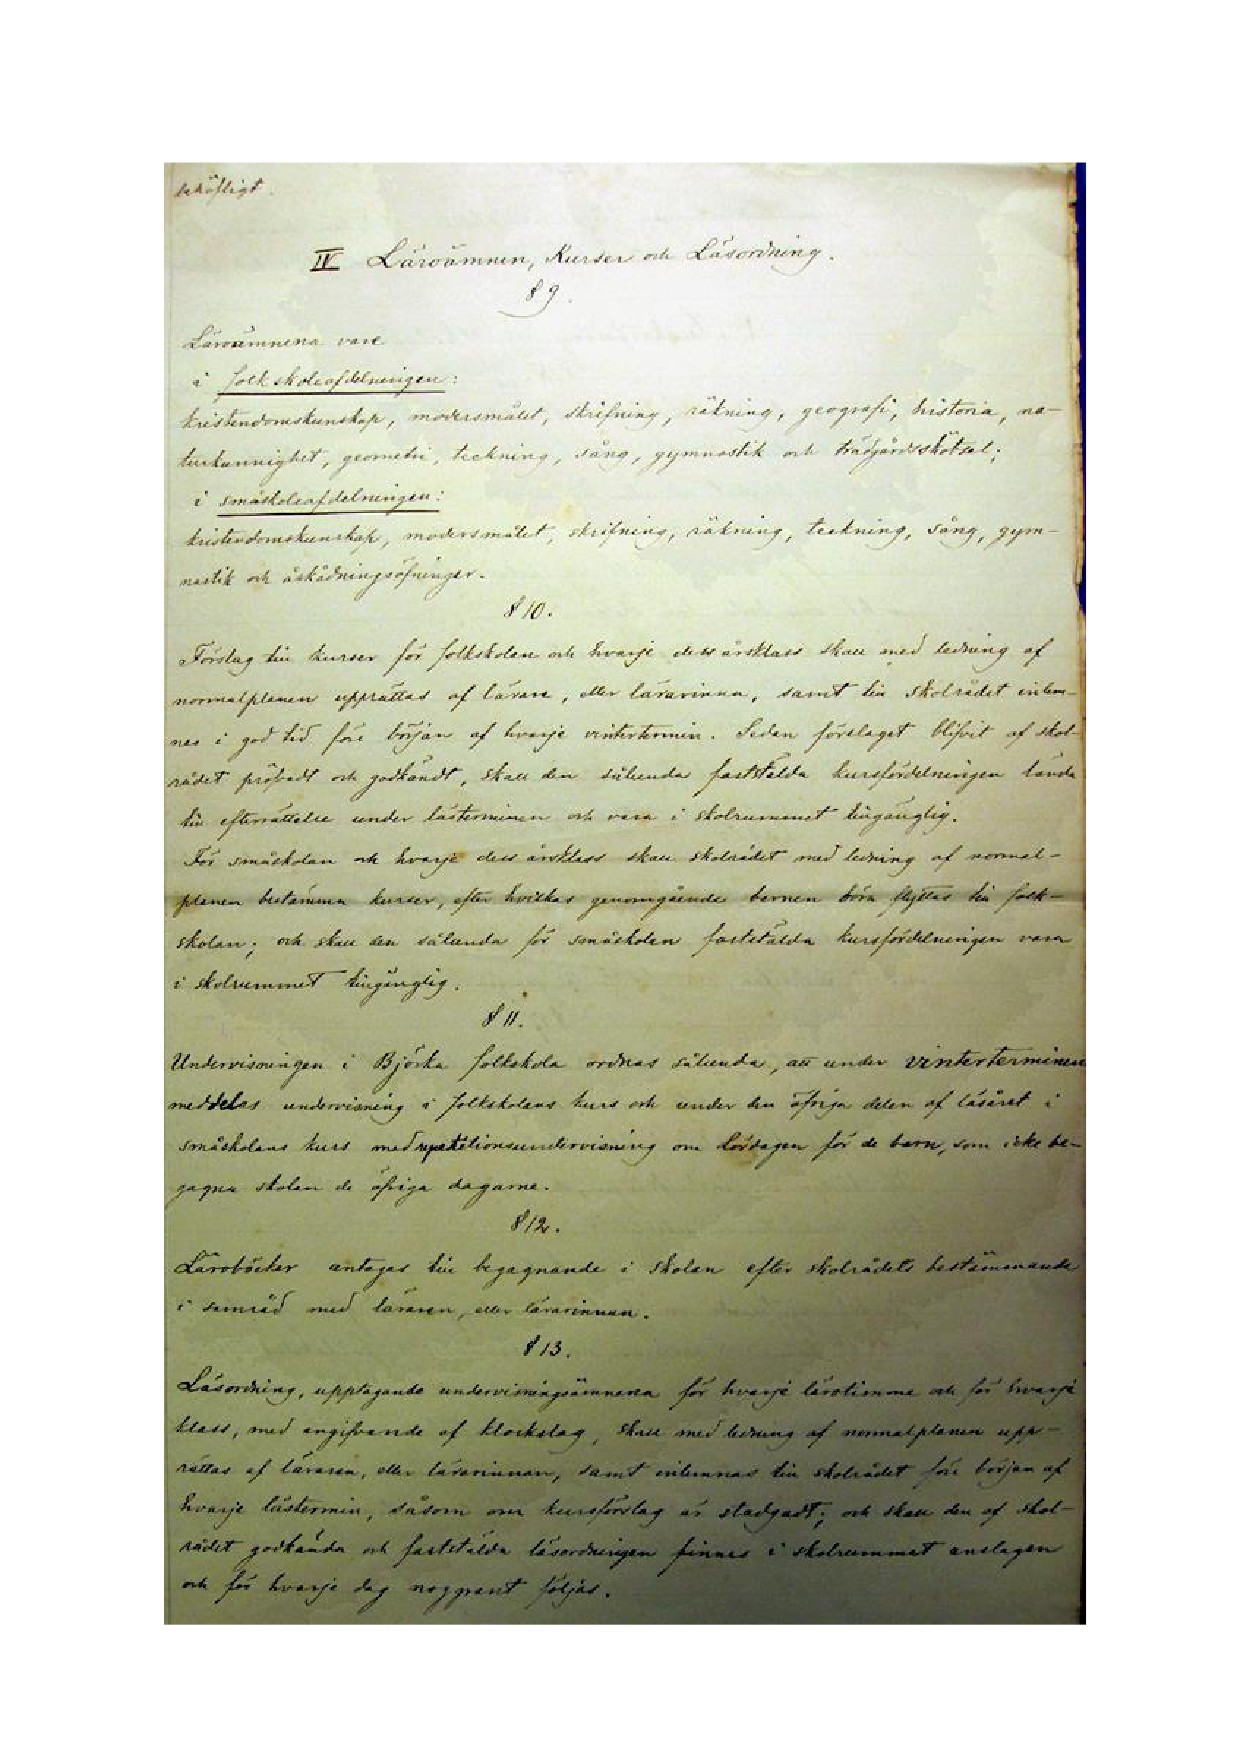 behöfligt.
IV Läroämnen, Kurser och Läsordning.
§ 9.
Läroämnena vare
i folkskoleafdelningen:
kristendomskunskap, modersmålet, skrifning, räkning, geografi, historia, na-
turkunnighet, geometri, teckning, sång, gymnastik och trädgårdsskötsel;
i småskoleafdelningen:
kristendomskunskap, modersmålet, skrifning, räkning, teckning, sång, gym-
nastik och åskådningsöfningar.
§ 10.
Förslag till kurser för folkskolan och hvarje dess årsklass skall med ledning af
normalplanen upprättas af lärare, eller lärarinna, samt till skolrådet inlem-
nas i god tid före början af hvarje vintertermin. Sedan förslaget blifvit af skol-
rådet pröfvadt och godkändt, skall den sålunda fastställda kursfördelningen lända
till efterrättelse under lästerminen och vara i skolrummet tillgänglig.
För småskolan och hvarje dess årsklass skall skolrådet med ledning af normal-
planen bestämma kurser, efter hvilkas genomgående barnen böra flyttas till folk-
skolan; och skall den sålunda för småskolan fastställda kursfördelningen vara
i skolrummet tillgänglig.
§ 11.
Undervisningen i Björka folkskola ordnas sålunda, att under vinterterminen
meddelas undervisning i folkskolans kurs och under den öfriga delen af läsåret i
småskolans kurs med repetitionsundervisning om lördagen för de barn, som icke be-
gagna skolan de öfriga dagarne.
§ 12.
Läroböcker antagas till begagnande i skolan efter skolrådets bestämmande
i samråd med läraren, eller lärarinnan.
§ 13.
Läsordning, upptagande undervisningsämnena för hvarje lärotimme och för hvarje
klass, med angifvande af klockslag, skall med ledning af normalplanen upp-
rättas af läraren, eller lärarinnan, samt inlemnas till skolrådet före början af
hvarje lästermin, såsom om kursförslag är stadgadt; och skall den af skol-
rådet godkända och fastställda läsordningen finnas i skolrummet anslagen
och för hvarje dag noggrant följas.